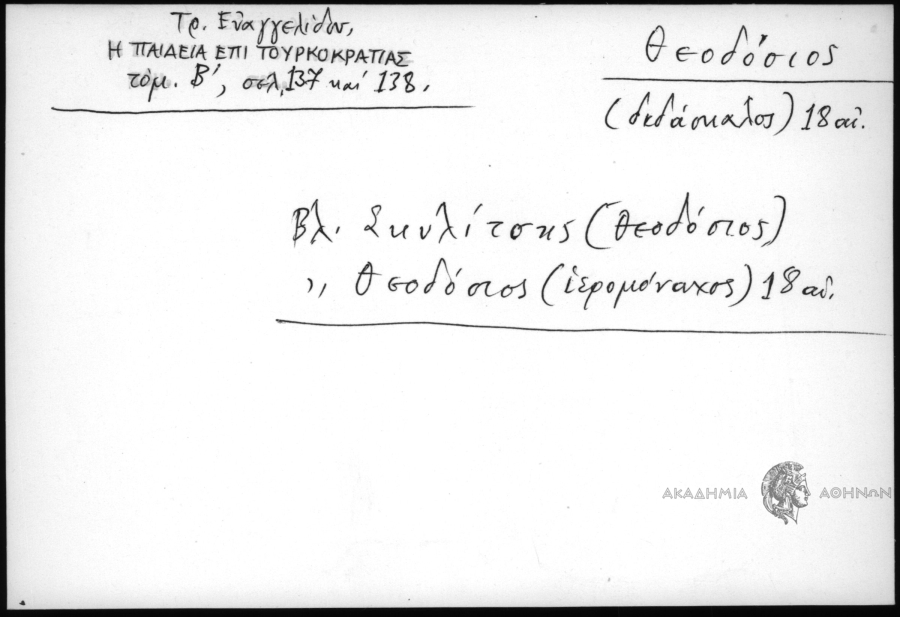 Τρ. Εὐαγγελίδου,
Η ΠΑΙΔΕΙΑ ΕΠΙ ΤΟΥΡΚΟΚΡΑΤΙΑΣ
τόμ. Β', σελ. 137 καί 138.
Θεοδόσιος
(διδάσκαλος) 18 αἰ.
Βλ. Σκυλίτσης (Θεοδόσιος)
,, Θεοδόσιος (ἱερομόναχος) 18 αἰ.
ΑΚΑΔΗΜΙΑ ΑΘΗΝΩΝ